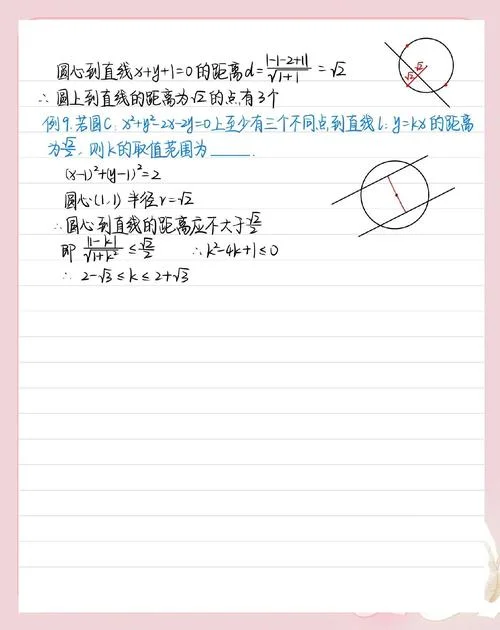 圆心到直线x+y+1=0的距离d=|-1-2+1|/√(1+1)=√2
∴圆上到直线的距离为√2的点有3个
√2 √2
例9.若圆C:x²+y²-2x-2y=0上至少有三个不同点到直线l:y=kx的距离
为√2/2,则k的取值范围为____.
(x-1)²+(y-1)²=2
圆心(1,1) 半径r=√2
∴圆心到直线的距离应不大于√2/2
即 |1-k|/√(1+k²) ≤ √2/2 ∴k²-4k+1≤0
∴ 2-√3≤k≤2+√3